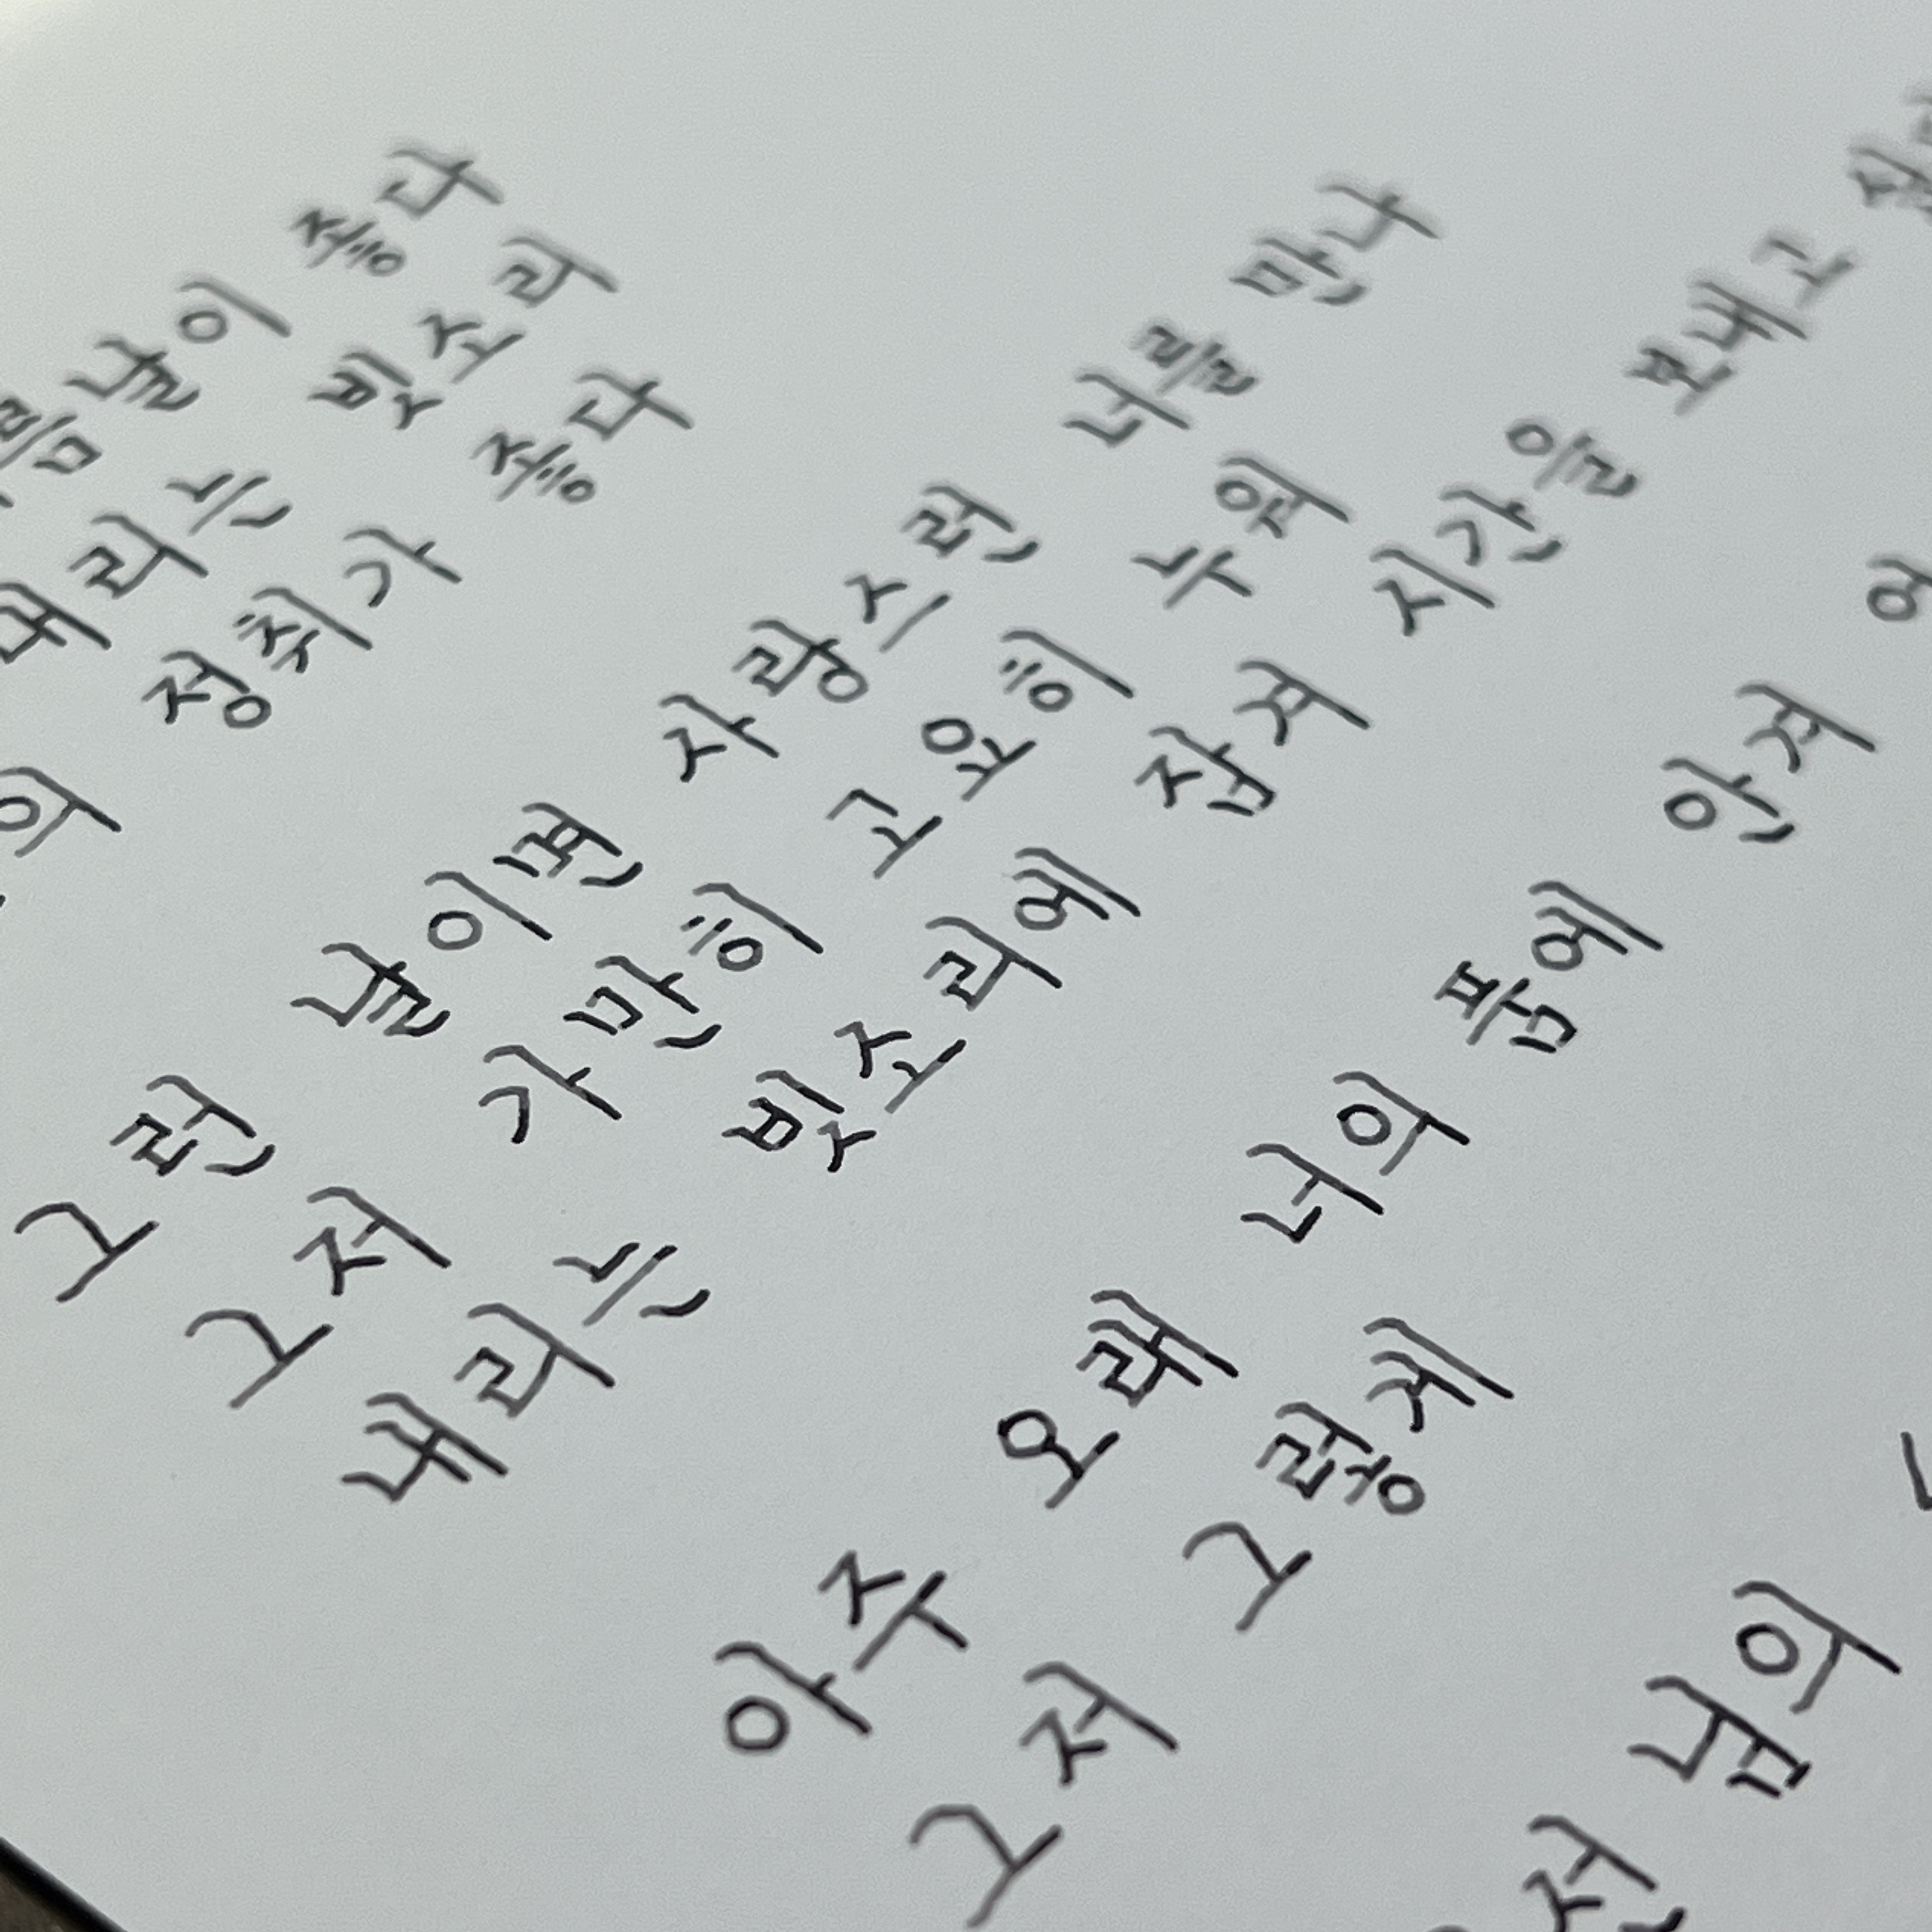 름날이 좋다
내리는 빗소리
의 정취가 좋다
그런 날이면 사랑스런 너를 만나
그저 가만히 고요히 누워
내리는 빗소리에 잠겨 시간을 보내고
아주 오래 너의 품에 안겨
그저 그렇게
넘의